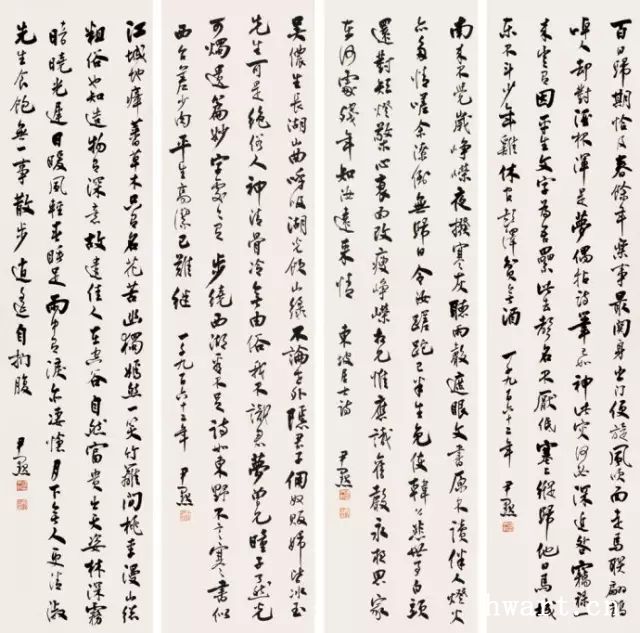 百日歸期恰及春餘年樂事最關身出門便旋風吹面走馬聯翩鵲
啅人却對酒杯渾是夢偶拈詩筆已如神此災何必深追咎竊祿從
來豈有因平生文字為吾累此去聲名不厭低塞上縱歸他日馬城
東不鬥少年雞休官彭澤貧無酒 一千九百六十三年 尹默
南來不覺歲崢嶸夜撥寒灰聽雨聲遮眼文書原不讀伴人燈火
亦多情嗟余潦倒無歸日今汝蹉跎已半生免使韓公悲世事白頭
還對短燈檠心衰面改瘦崢嶸相見惟應識舊聲永夜思家
在何處殘年知汝遠來情 東坡居士詩 尹默
吳儂生長湖山曲呼吸湖光飲山綠不論世外隱君子傭奴販婦皆冰玉
先生可是絕俗人神清骨冷無由俗我不識君夢曾見瞳子了然光
可燭遺篇妙字處處有步繞西湖看不足詩如東野不言寒書似
西台差少肉平生高潔已難繼 一千九百六十三年 尹默
江城地瘴蕃草木只有名花苦幽獨嫣然一笑竹籬間桃李漫山總
粗俗也知造物有深意故遣佳人在空谷自然富貴出天姿林深霧
暗曉光遲日暖風輕春睡足雨中有淚亦悽愴月下無人更清淑
先生食飽無一事散步逍遙自捫腹 尹默